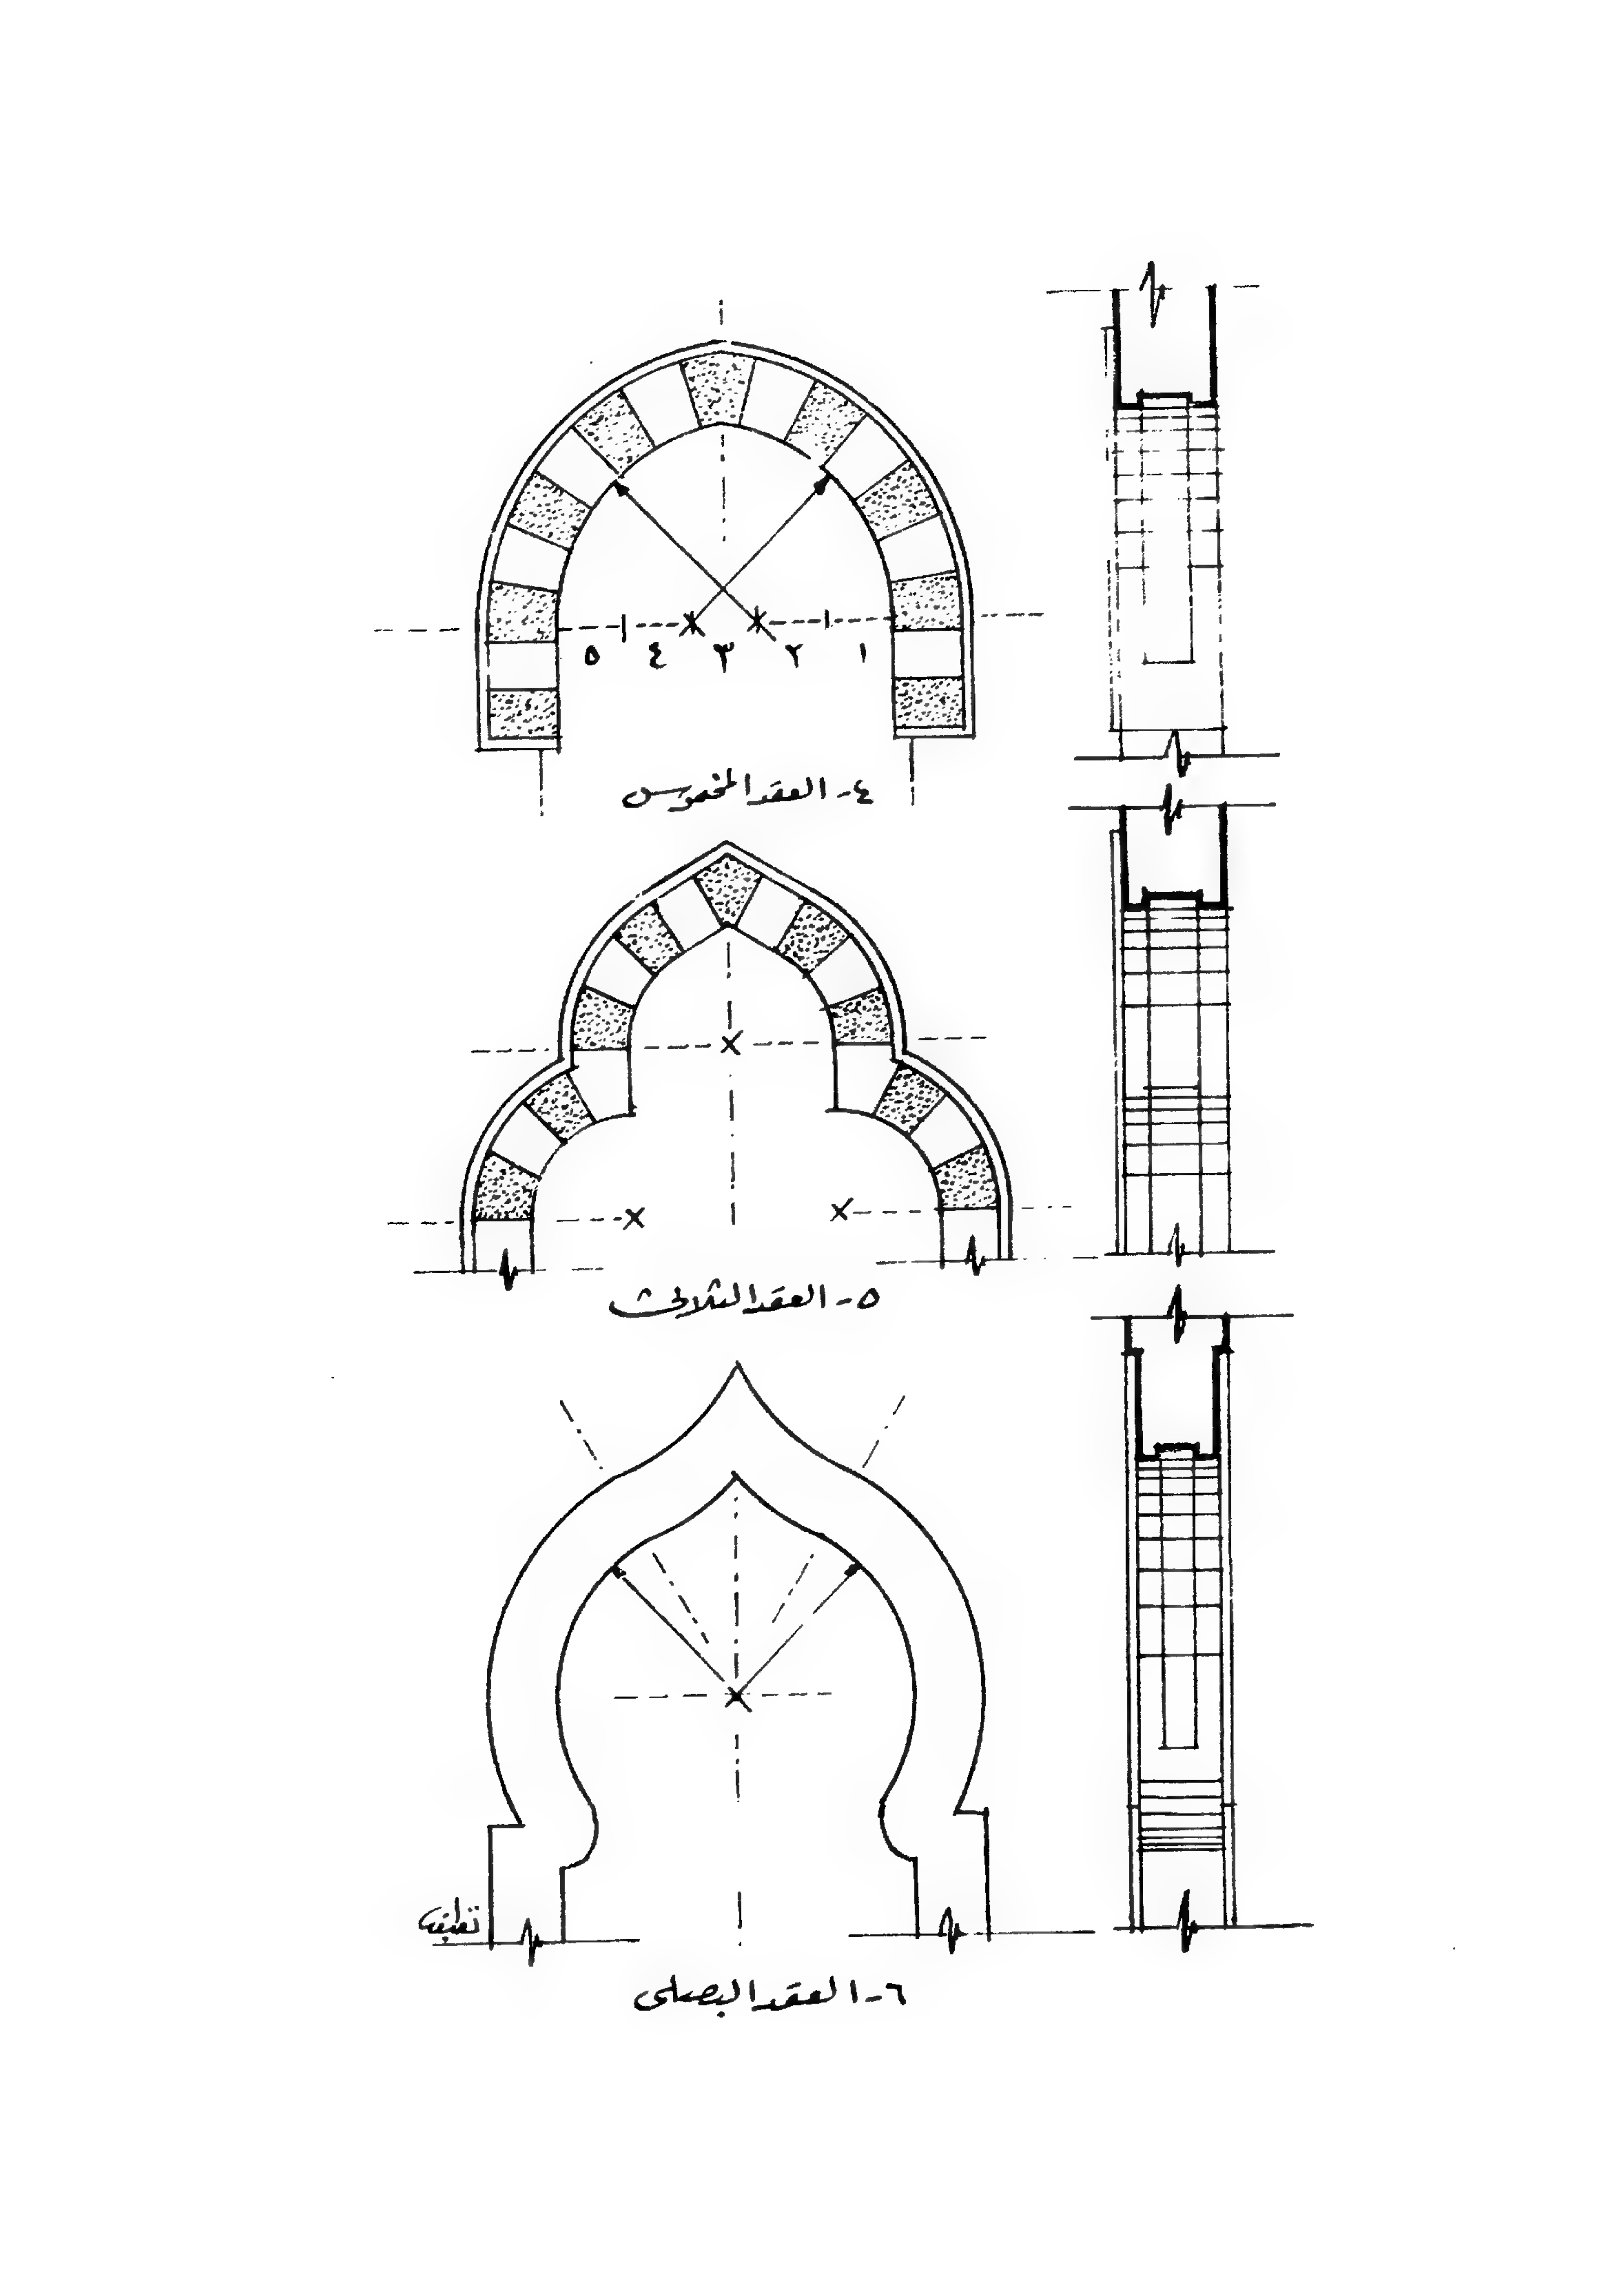 ٥ ٤ ٣ ٢ ١
٤- العقد المخموس
٥- العقد الثلاثى
٦- العقد البصلى